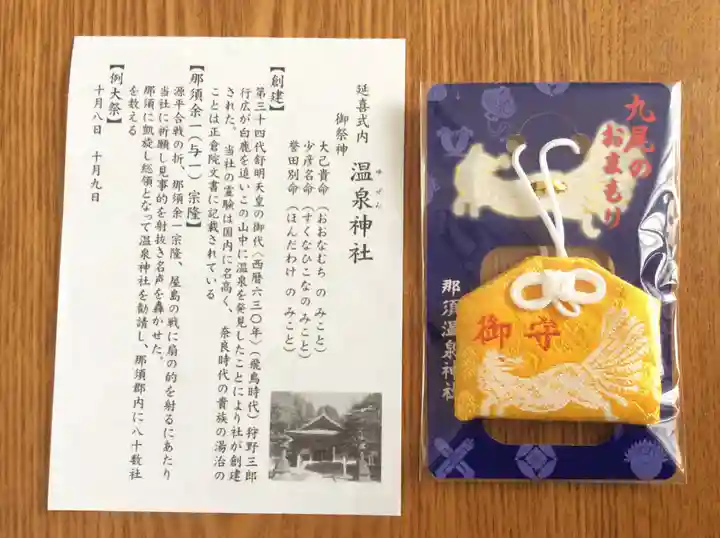 延喜式内 温泉神社
ゆぜん
御祭神
大己貴命(おおなむち の みこと)
少彦名命(すくなひこなの みこと)
誉田別命(ほんだわけ の みこと)
【創建】
第三十四代舒明天皇の御代(西暦六三〇年)(飛鳥時代)狩野三郎
行広が白鹿を追いこの山中に温泉を発見したことにより社が創建
された。当社の霊験は国内に名高く、奈良時代の貴族の湯治の
ことは正倉院文書に記載されている
【那須余一(与一)宗隆】
源平合戦の折、那須余一宗隆、屋島の戦に扇の的を射るにあたり
当社に祈願し見事的を射抜き名声を轟かせた。
那須に凱旋し総領となって温泉神社を勧請し、那須郡内に八十数社
を数える
【例大祭】
十月八日 十月九日
九尾の
おまもり
那須温泉神社
御守